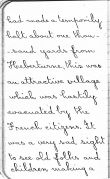 had made a temporarily
halt about one thou-
sand yards from
Hebuterne, this was
an attractive village
which was hastily
evacuated by the
French citizens. It
was a very sad sight
to see old folks and
children making a